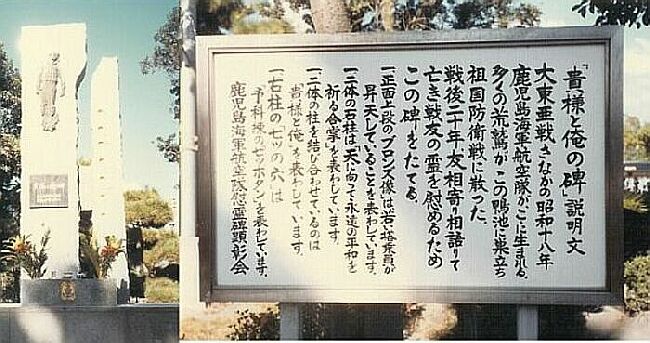 「貴様と俺の碑」説明文
大東亜戦さなかの昭和十八年
鹿児島海軍航空隊がここに生まれる。
多くの荒鷲がこの鴨池に巣立ち
祖国防衛戦に散った。
戦後二十年友相寄り相語りて
亡き戦友の霊を慰めるため
この碑をたてる。
一、正面上段のブロンズ像は若い搭乗員が
昇天していることを表わしています。
一、二体の石柱は天に向って永遠の平和を
祈る合掌を表わしています。
一、二体の柱を結び合わせているのは
貴様と俺を表わしています。
一、右柱の七ッの穴は
予科練の七ッボタンを表わしています。
鹿児島海軍航空隊慰霊碑顕彰会